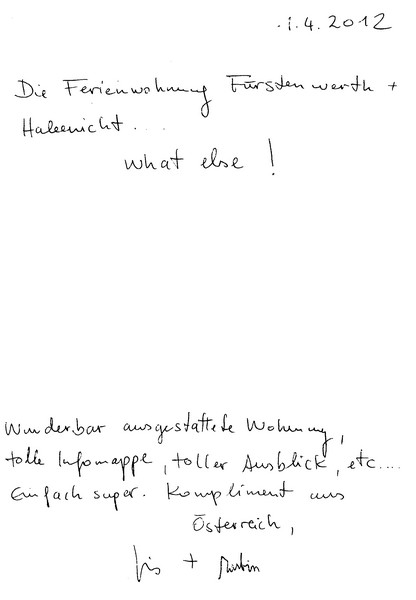 1.4.2012
Die Ferienwohnung Fürstenwerth +
what else !
Wunderbar ausgestattete Wohnung,
tolle Infomappe, toller Ausblick, etc....
Einfach super. Kompliment aus
Österreich,
+ Martin